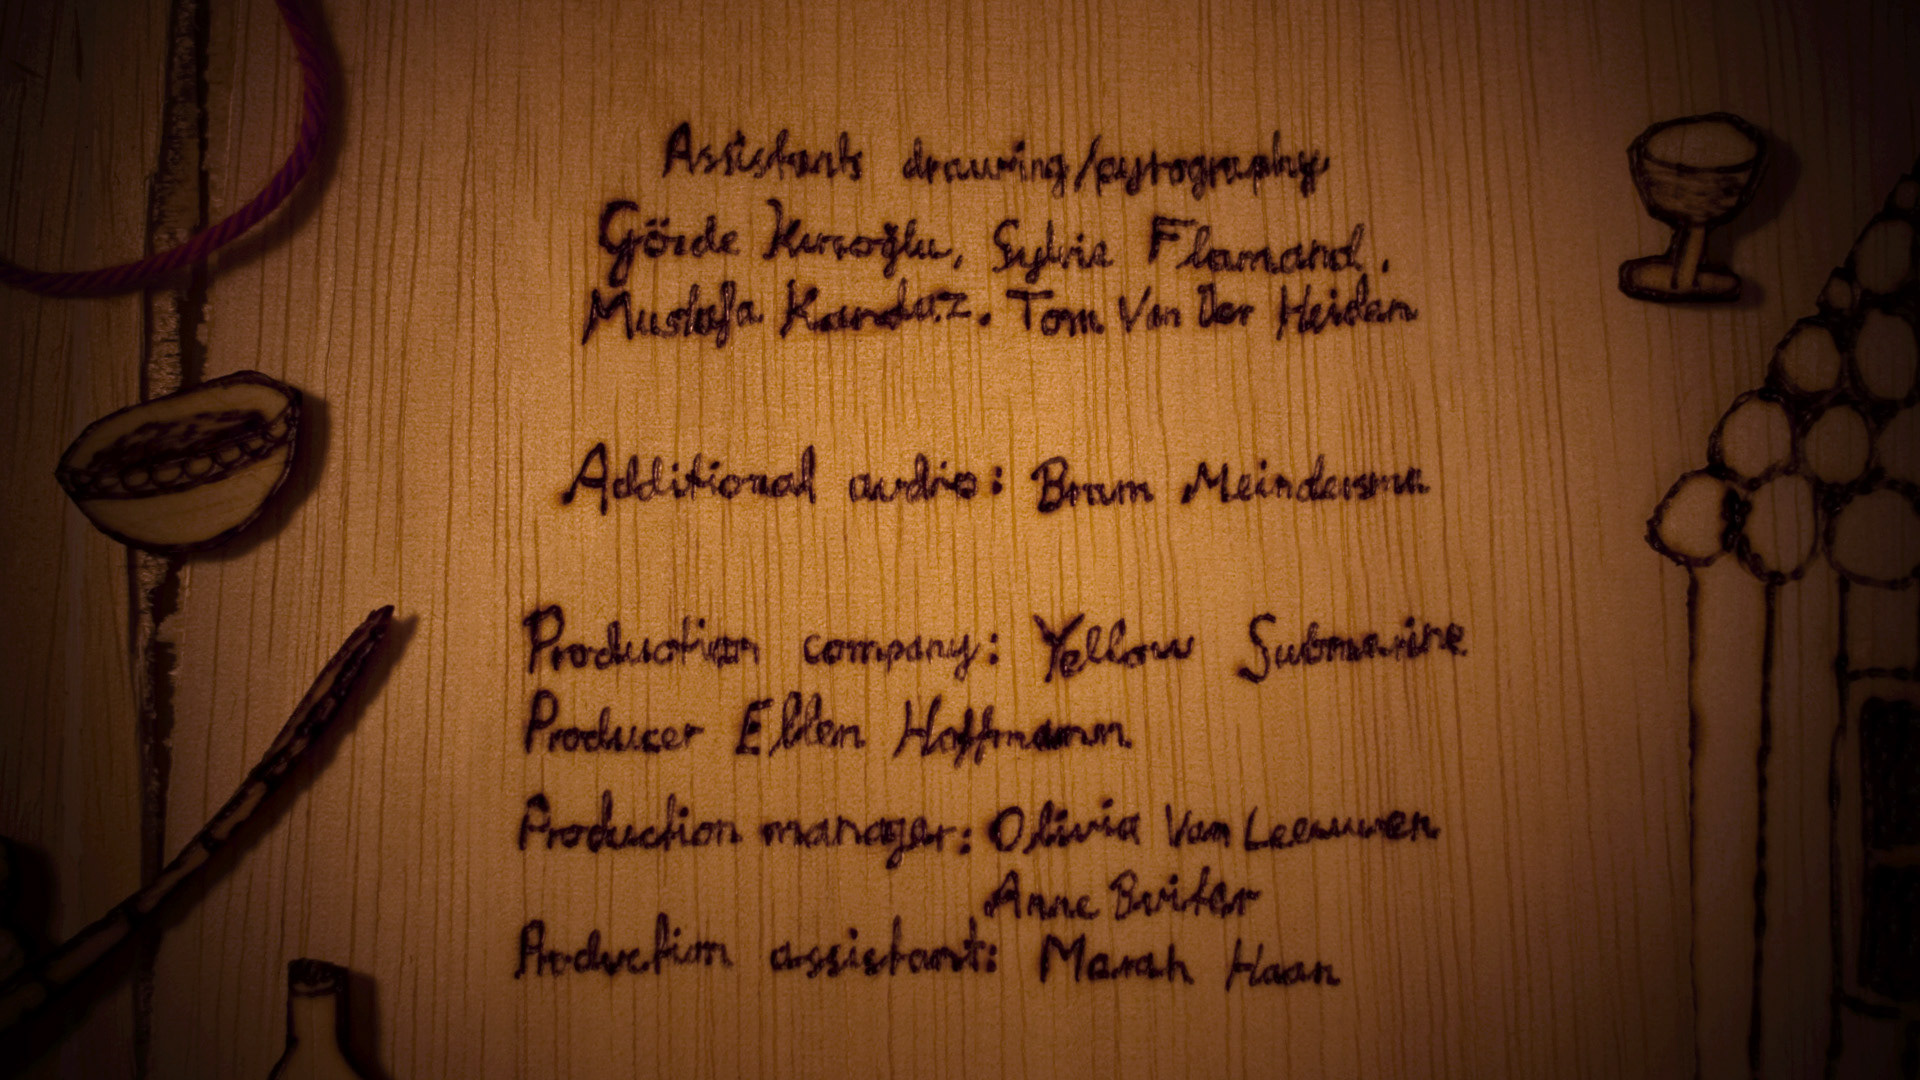 Assistants drawing/pyrography
Gözde Kırcıoğlu, Sylvie Flamand,
Mustafa Kanduz. Tom Van Der Heiden
Additional audio: Bram Meindersma
Production company: Yellow Submarine
Producer Ellen Hoffmann
Production manager: Olivia Van Leeuwen
Anne Bruiter
Production assistant: Marah Haan